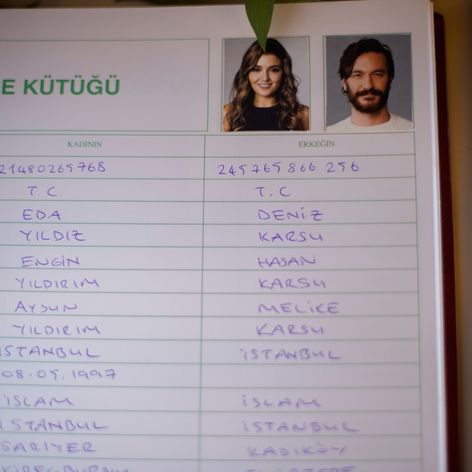 E KÜTÜĞÜ
KADININ ERKEĞİN
21480265768 245765866 256
T C T.C
EDA DENİZ
YILDIZ KARSU
ENGİN HASAN
YILDIRIM KARSU
AYSUN MELİKE
YILDIRIM KARSU
İSTANBUL İSTANBUL
08.05.1997
İSLAM İSLAM
İSTANBUL İSTANBUL
SARIYER KADIKÖY